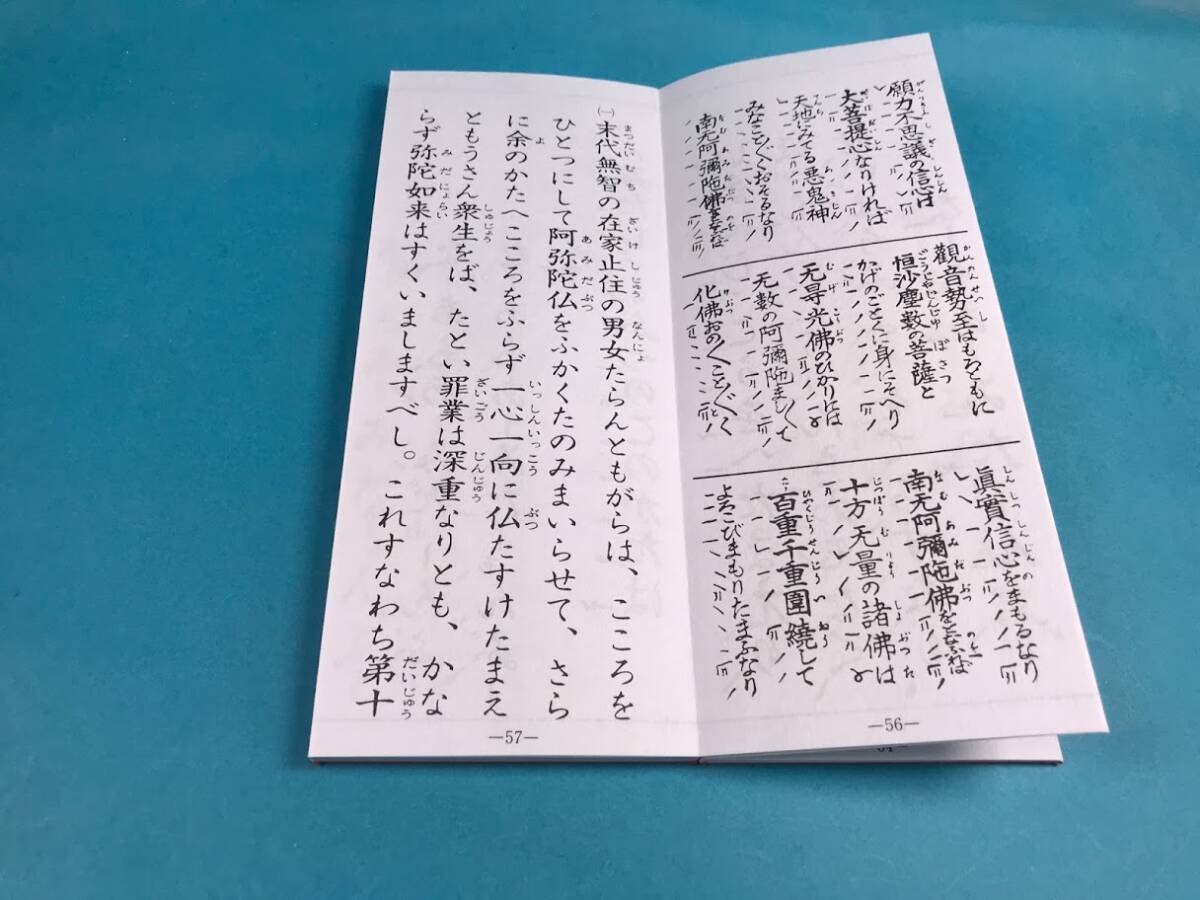 願力不思議の信心は
大菩提心なりければ
天地にみてる悪鬼神
みなことごとくおそるなり
南无阿彌陁佛をとなふれば
觀音勢至はもろともに
恒沙塵數の菩薩と
かげのごとくに身にそへり
无㝵光佛のひかりには
无数の阿彌陁ましまして
化佛おの〳〵こと〴〵く
眞實信心をまもるなり
南无阿彌陁佛をとなふれば
十方无量の諸佛は
百重千重圍繞して
よろこびまもりたまふなり
—56—
㈠末代無智の在家止住の男女たらんともがらは、こころを
ひとつにして阿弥陀仏をふかくたのみまいらせて、さら
に余のかたへこころをふらず一心一向に仏たすけたまえ
ともうさん衆生をば、たとい罪業は深重なりとも、かな
らず弥陀如来はすくいましますべし。これすなわち第十
—57—